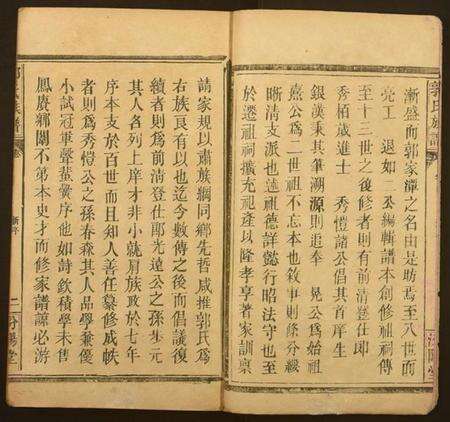 郭氏族譜
漸盛而郭家潭之名由是昉焉至八世而
亮工　退如二公編輯譜本創修祖祠傳
至十三世之後修者則有前清登仕郎
秀栢歲進士　秀愷諸公倡其首庠生
銀漢秉其筆溯源則追奉　晃公為始祖
熹公為二世祖不忘本也敘事則條分縷
晰清支派也述祖德詳懿行昭法守也至
於遷祖祠擴充祀產以隆孝享著家訓禀
請家規以肅族綱同鄉先哲咸推郭氏為
右族良有以也迄今數傳之後而倡議復
續者則為前清登仕郎光遠公之孫步元
其人各列上庠才非小就肩族政於七年
序本支於百世而且知人善任纂修咸帙
者則為秀愷公之孫春森其人品學兼優
小試冠軍聲蜚黌序他如詩欽積學未售
鳳賡鄉闈不第本史才而修家譜諒必游
新序
二
汾陽堂